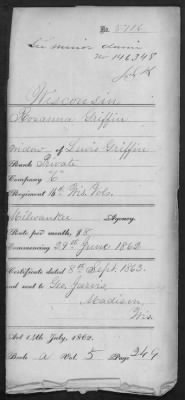 No. 5716
See minor claim
No 146348
Wisconsin
Rosanna Griffin
widow of Lewis Griffin
Rank Private
Company "C"
Regiment 16th Wis. Vols.
Milwaukee Agency.
Rate per month, $8.
Commencing 29th June 1862
Certificate dated 8th Sept. 1863.
and sent to Geo. Jarvis
Madison,
Wis.
Act 14th July, 1862.
Book A Vol. 5 Page 249